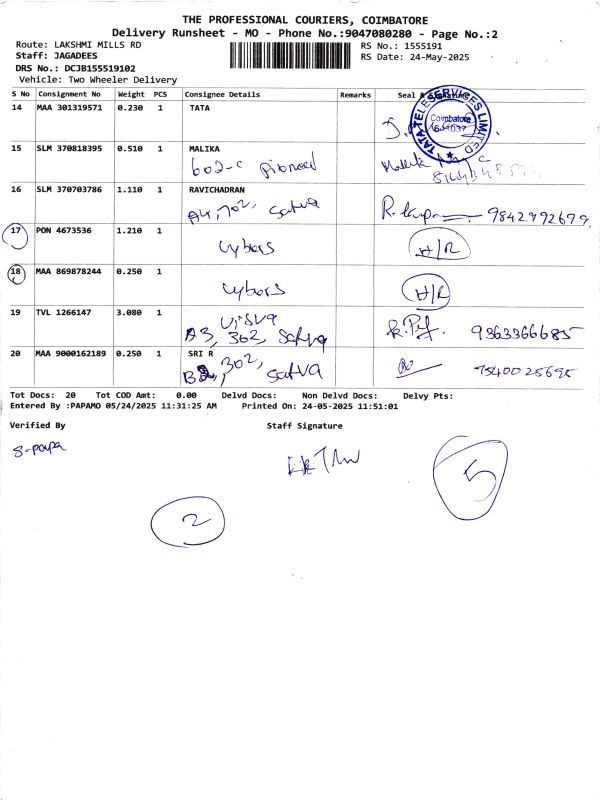 THE PROFESSIONAL COURIERS, COIMBATORE
Delivery Runsheet - MO - Phone No.:9047080280 - Page No.:2
Route: LAKSHMI MILLS RD
RS No.: 1555191
Staff: JAGADEES
RS Date: 24-May-2025
DRS No.: DCJB155519102
Vehicle: Two Wheeler Delivery
S No Consignment No Weight PCS Consignee Details Remarks Seal & Signature
14 MAA 301319571 0.230 1 TATA
TATA TELESERVICES LIMITED
Coimbatore
15 SLM 370818395 0.510 1 MALIKA
602-C
16 SLM 370703786 1.110 1 RAVICHADRAN
A4, 702, Satva 9842992699
17 PON 4673536 1.210 1
cybers H/R
18 MAA 869878244 0.250 1
cybers H/R
19 TVL 1266147 3.080 1
A3, 302, Satva 9363366685
20 MAA 9000162189 0.250 1 SRI R
302,
Satva 7540025695
Tot Docs: 20 Tot COD Amt: 0.00 Delvd Docs: Non Delvd Docs: Delvy Pts:
Entered By :PAPAMO 05/24/2025 11:31:25 AM Printed On: 24-05-2025 11:51:01
Verified By Staff Signature
S-papa
5
2